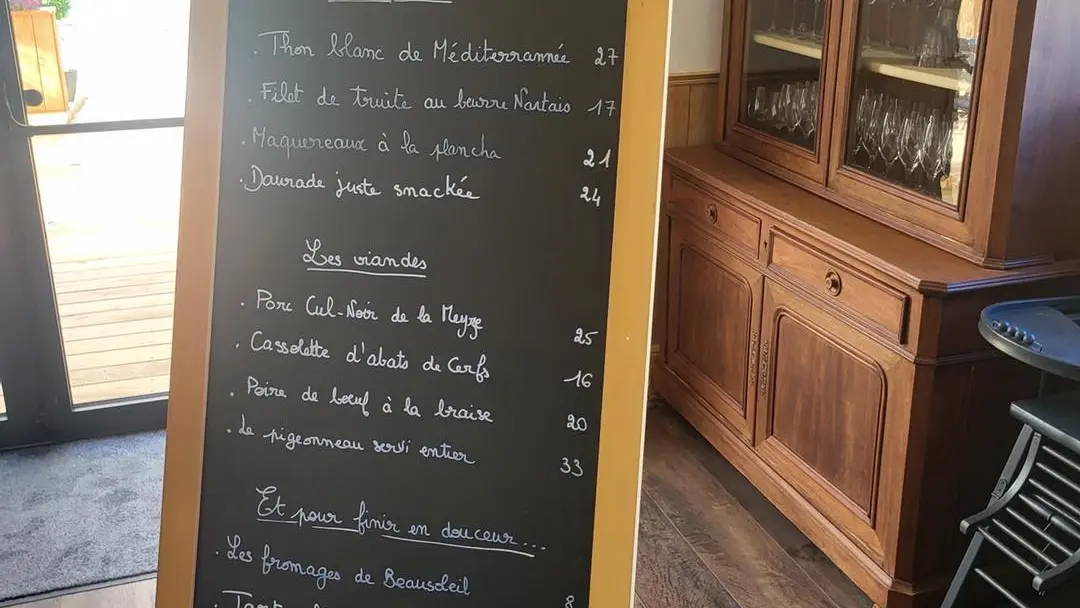 . Thon blanc de Méditerrannée 27
. Filet de truite au beurre Nantais 17
. Maquereaux à la plancha 21
. Daurade juste snackée 24
Les viandes
. Porc Cul-Noir de la Meyze 25
. Cassolette d'abats de Cerfs 16
. Poire de bœuf à la braise 20
. Le pigeonneau servi entier 33
Et pour finir en douceur...
. Les fromages de Beausoleil 8